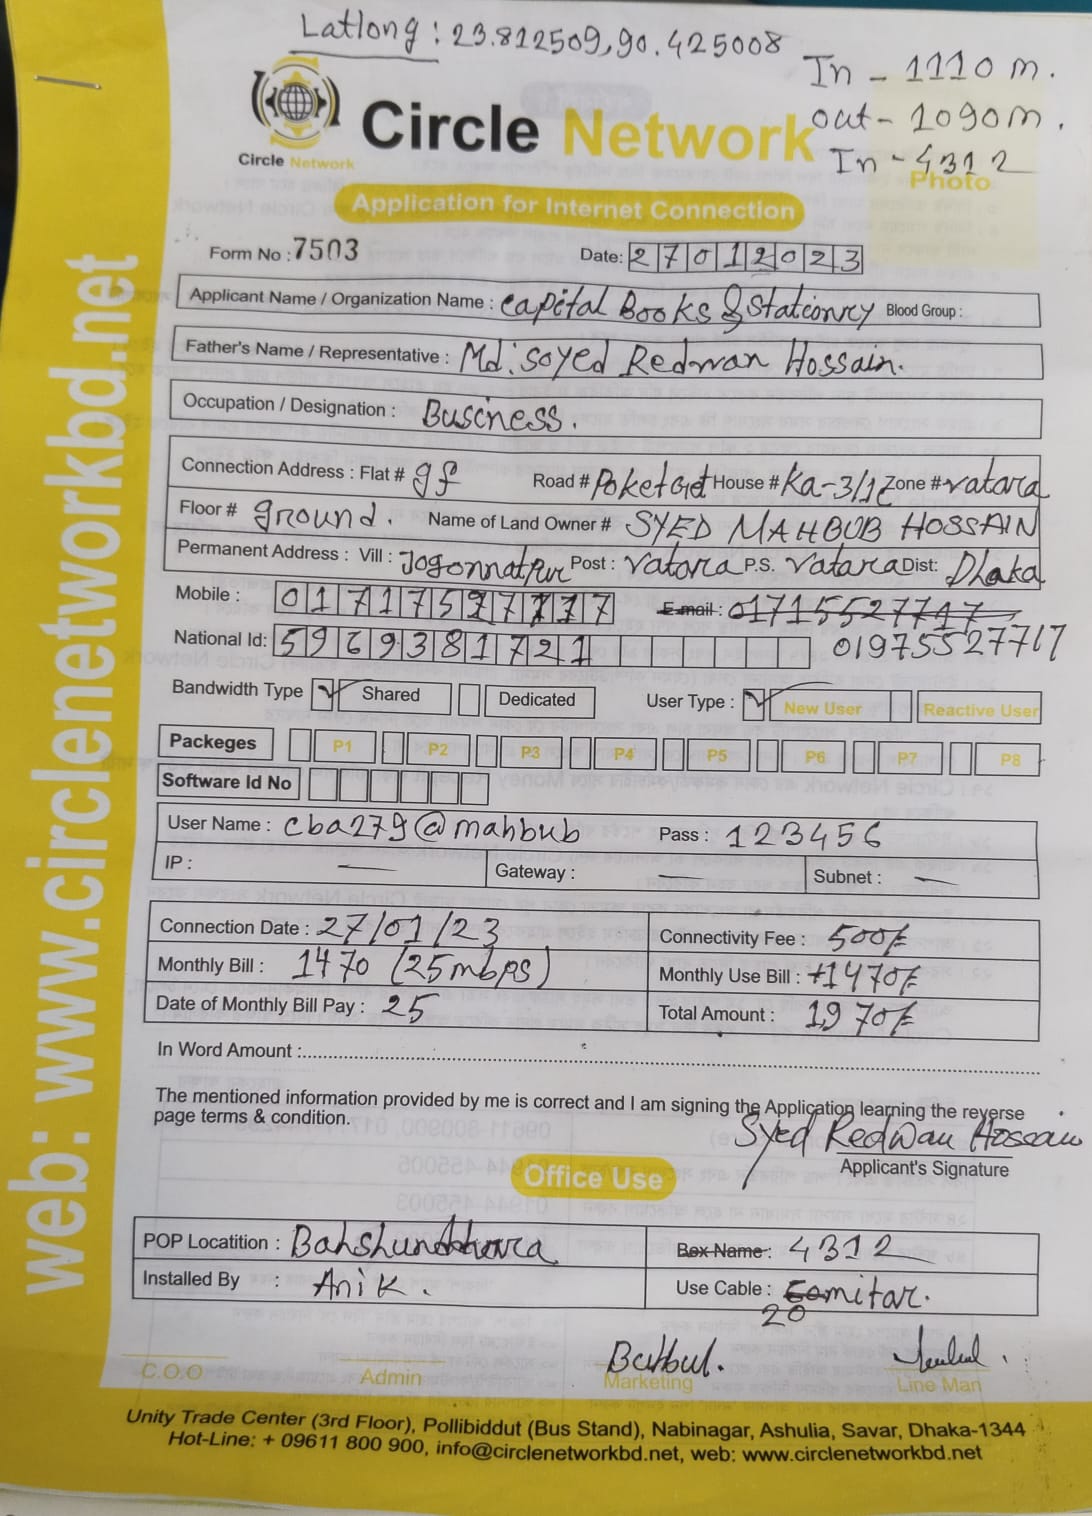 Latlong : 23.812509,90.425008
In - 1110 m.
out - 1090m.
In - 4312
Circle Network
Circle Network
Photo
Application for Internet Connection
Form No : 7503 Date: 27012023
Applicant Name / Organization Name : Capital Books & Stationry Blood Group :
Father's Name / Representative : Md. Soyed Redwan Hossain.
Occupation / Designation : Busciness.
Connection Address : Flat # gf Road # Poket Get House # Ka-3/1 Zone # vatara
Floor # ground. Name of Land Owner # SYED MAHBUB HOSSAIN
Permanent Address : Vill : Jogonnatpur Post : Vatara P.S. Vatara Dist: Dhaka
Mobile : Email : 01715527717
National Id: 5969381721 01975527717
Bandwidth Type Shared Dedicated User Type : New User Reactive User
Packeges P1 P2 P3 P4 P5 P6 P7 P8
Software Id No
User Name : cba279@mahbub Pass : 123456
IP : — Gateway : — Subnet : —
Connection Date : 27/01/23 Connectivity Fee : 500/=
Monthly Bill : 1470 (25mbps) Monthly Use Bill : +1470/=
Date of Monthly Bill Pay : 25 Total Amount : 1970/=
In Word Amount :
The mentioned information provided by me is correct and I am signing the Application learning the reverse
page terms & condition.
Syed Redwan Hossain
Applicant's Signature
Office Use
POP Locatition : Box Name : 4312
Installed By : Anik. Use Cable : mitar.
20
C.O.O Admin Marketing Line Man
Unity Trade Center (3rd Floor), Pollibiddut (Bus Stand), Nabinagar, Ashulia, Savar, Dhaka-1344
Hot-Line: + 09611 800 900, info@circlenetworkbd.net, web: www.circlenetworkbd.net
web: www.circlenetworkbd.net